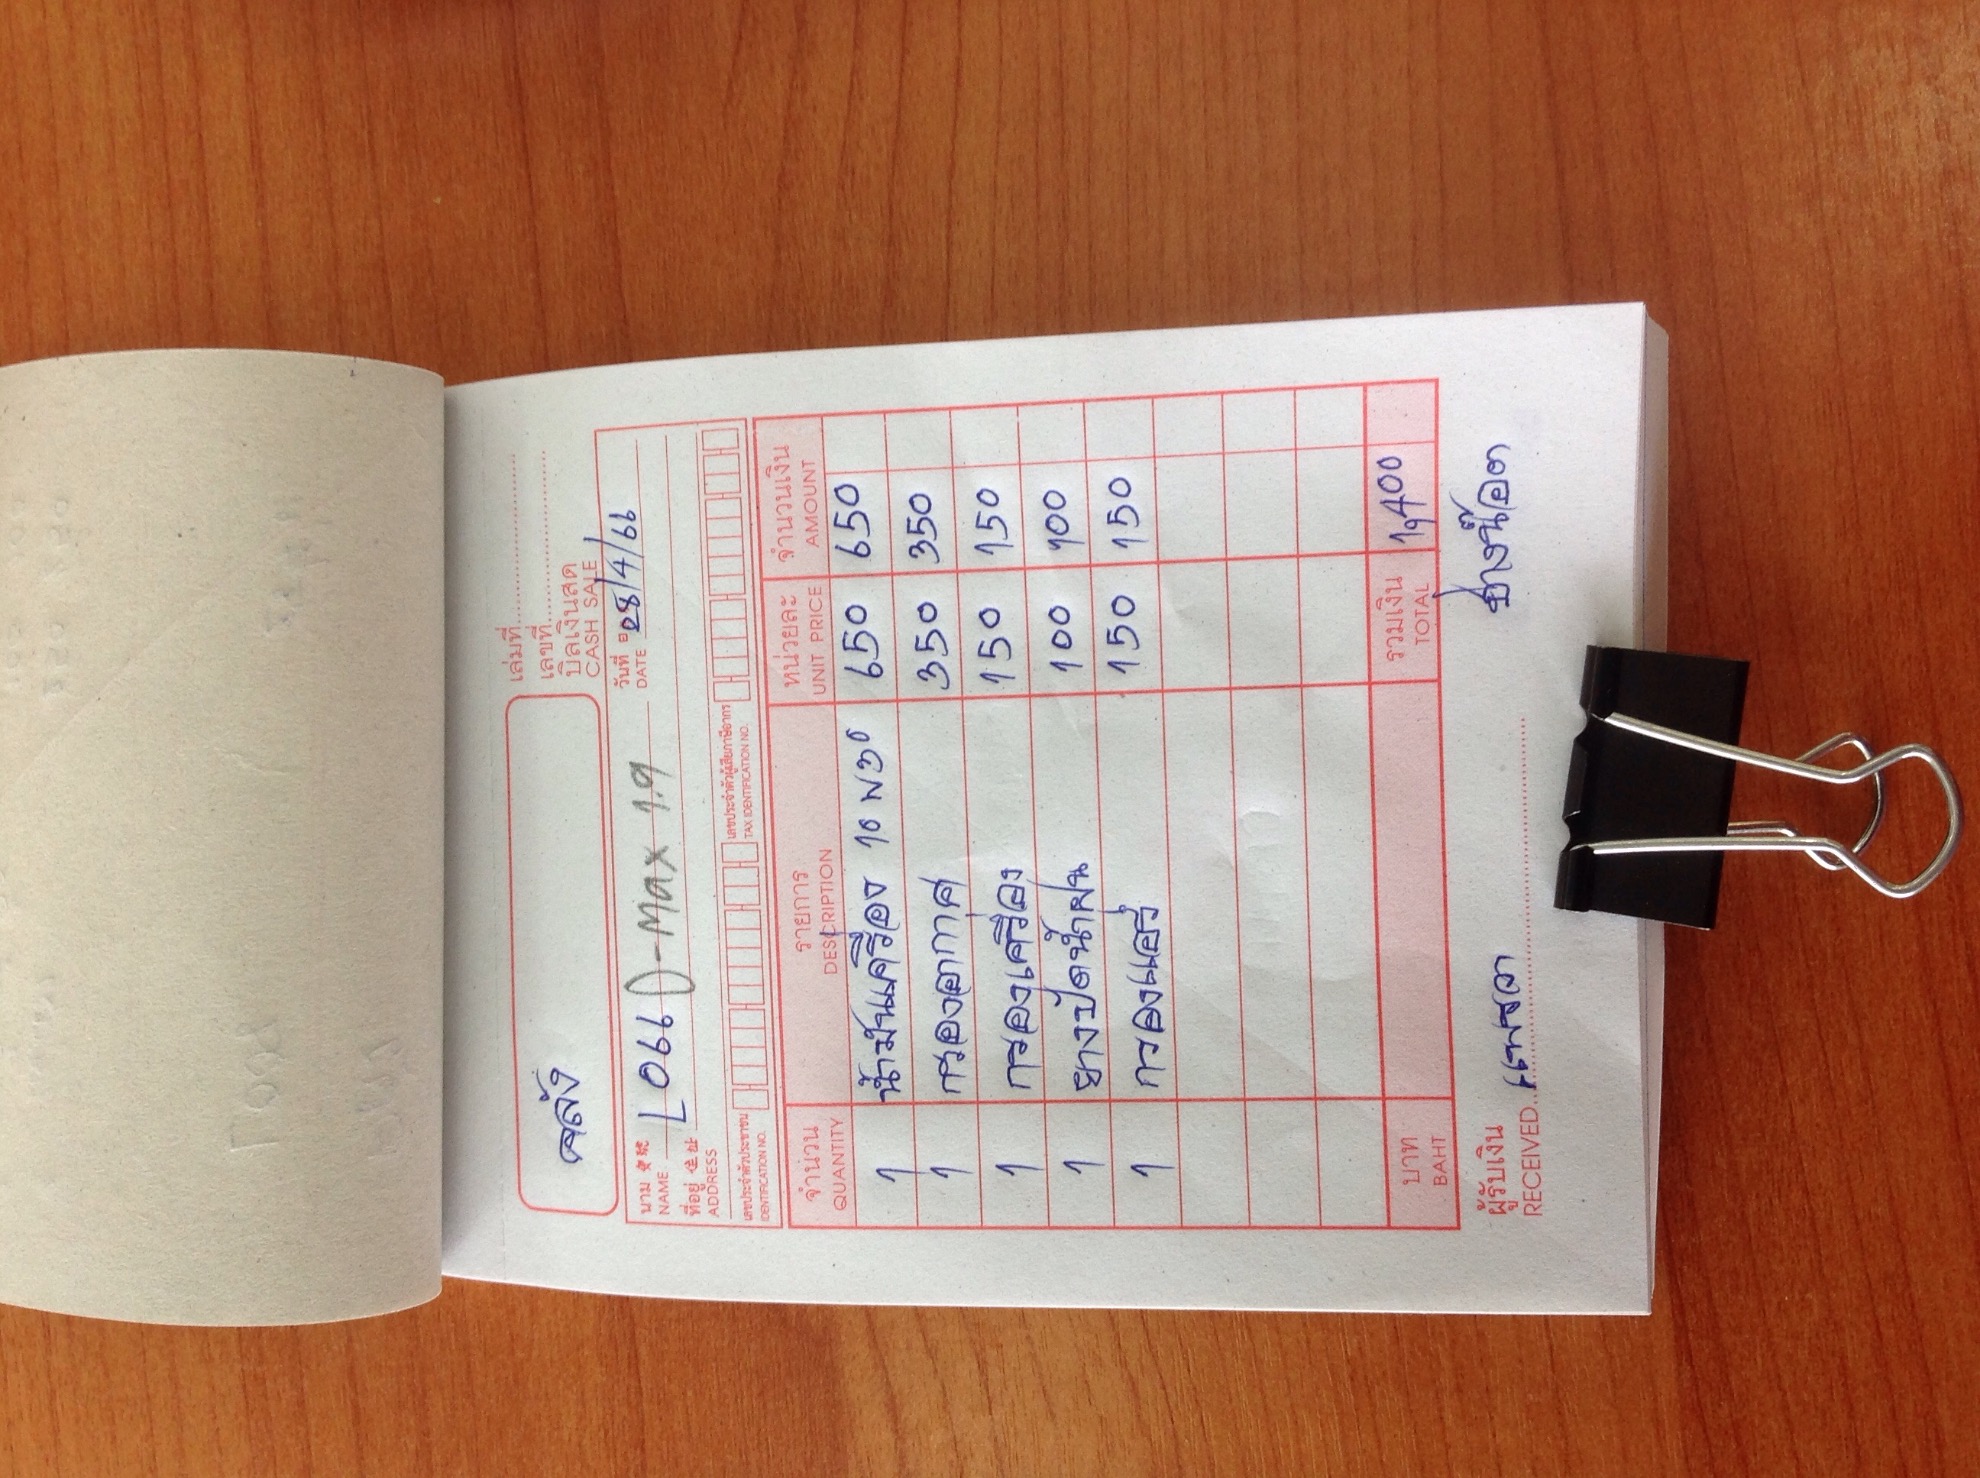 เล่มที่
เลขที่
คลัง
บิลเงินสด
CASH SALE
วันที่ 28/4/66
DATE
นาม
NAME L 066 D-Max 1.9
ที่อยู่ 住址
ADDRESS
เลขประจำตัวประชาชน เลขประจำตัวผู้เสียภาษีอากร
IDENTIFICATION NO. TAX IDENTIFICATION NO.
จำนวน รายการ หน่วยละ จำนวนเงิน
QUANTITY DESCRIPTION UNIT PRICE AMOUNT
1 น้ำมันเครื่อง 10 W30 650 650
1 กรองอากาศ 350 350
1 กรองเครื่อง 150 150
1 ยางปัดน้ำฝน 100 100
1 กรองแอร์ 150 150
บาท รวมเงิน 1,400
BAHT TOTAL
ผู้รับเงิน
RECEIVED